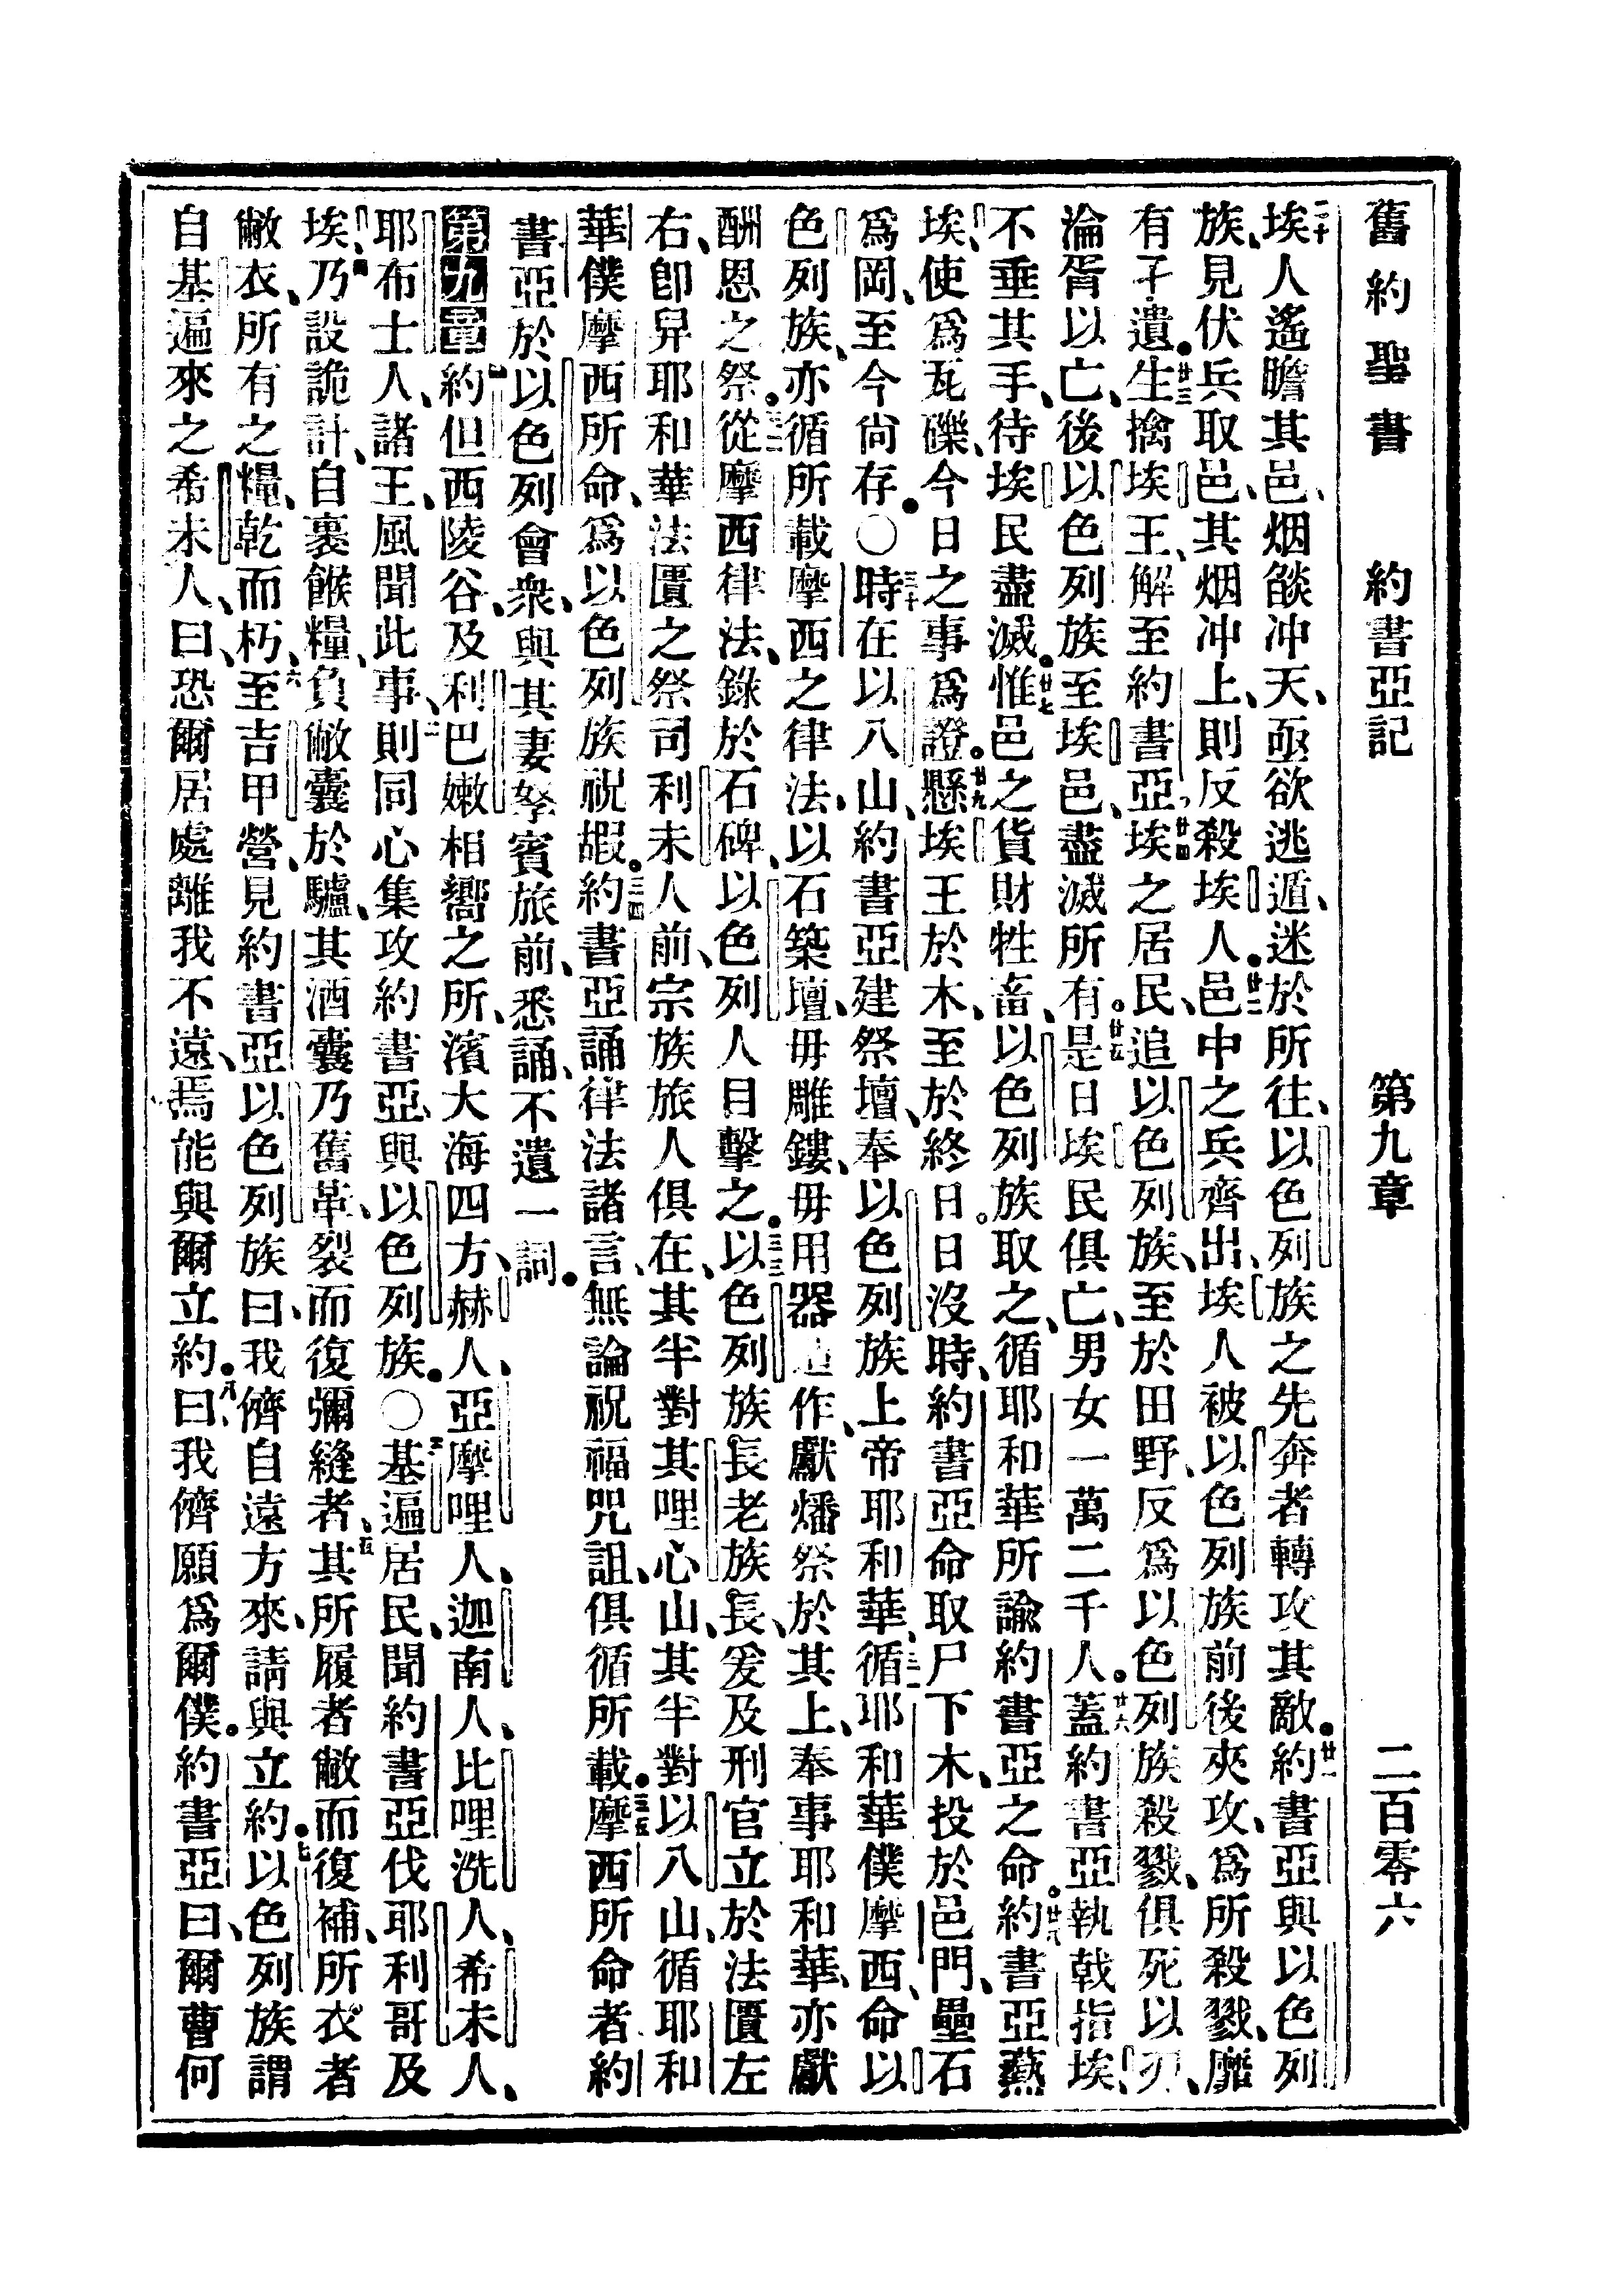 舊約聖書 約書亞記 第九章 二百零六
二十埃人遙瞻其邑、烟燄冲天、亟欲逃遁、迷於所往、以色列族之先奔者轉攻其敵。廿一約書亞與以色列
族、見伏兵取邑、其烟冲上、則反殺埃人。廿二邑中之兵齊出、埃人被以色列族前後夾攻、爲所殺戮、靡
有孑遺。廿三生擒埃王、解至約書亞、廿四埃之居民、追以色列族、至於田野、反爲以色列族殺戮、俱死以刃、
淪胥以亡、後以色列族至埃邑、盡滅所有。廿五是日埃民俱亡、男女一萬二千人。廿六蓋約書亞執戟指埃、
不垂其手、待埃民盡滅。廿七惟邑之貨財牲畜、以色列族取之、循耶和華所諭約書亞之命。廿八約書亞燕
埃、使爲瓦礫、今日之事爲證。廿九懸埃王於木、至於終日。日沒時、約書亞命取尸下木、投於邑門、壘石
爲岡、至今尙存。〇三十時在以八山、約書亞建祭壇、奉以色列族上帝耶和華、三一循耶和華僕摩西、命以
色列族、亦循所載摩西之律法、以石築壇、毋雕鏤、毋用器造作、獻燔祭於其上、奉事耶和華、亦獻
酬恩之祭。三二從摩西律法、錄於石碑、以色列人目擊之。三三以色列族長老族長、爰及刑官立於法匱左
右、卽舁耶和華法匱之祭司利未人前、宗族旅人俱在、其半對其哩心山、其半對以八山、循耶和
華僕摩西所命、爲以色列族祝嘏。三四約書亞誦律法諸言、無論祝福咒詛、俱循所載。三五摩西所命者、約
書亞於以色列會衆、與其妻孥賓旅前、悉誦、不遺一詞。
第九章 一約但西陵谷、及利巴嫩相嚮之所、濱大海四方、赫人、亞摩哩人、迦南人、比哩洗人、希未人、
耶布士人、諸王、風聞此事、二則同心集攻約書亞、與以色列族。〇三基遍居民、聞約書亞伐耶利哥及
埃、四乃設詭計、自裹餱糧、負敝囊於驢、其酒囊乃舊革、裂而復彌縫者、五其所履者敝而復補、所衣者
敝衣、所有之糧、乾而朽、六至吉甲營、見約書亞以色列族曰、我儕自遠方來、請與立約。七以色列族謂
自基遍來之希未人、曰、恐爾居處離我不遠、焉能與爾立約。八曰、我儕願爲爾僕。約書亞曰、爾曹何